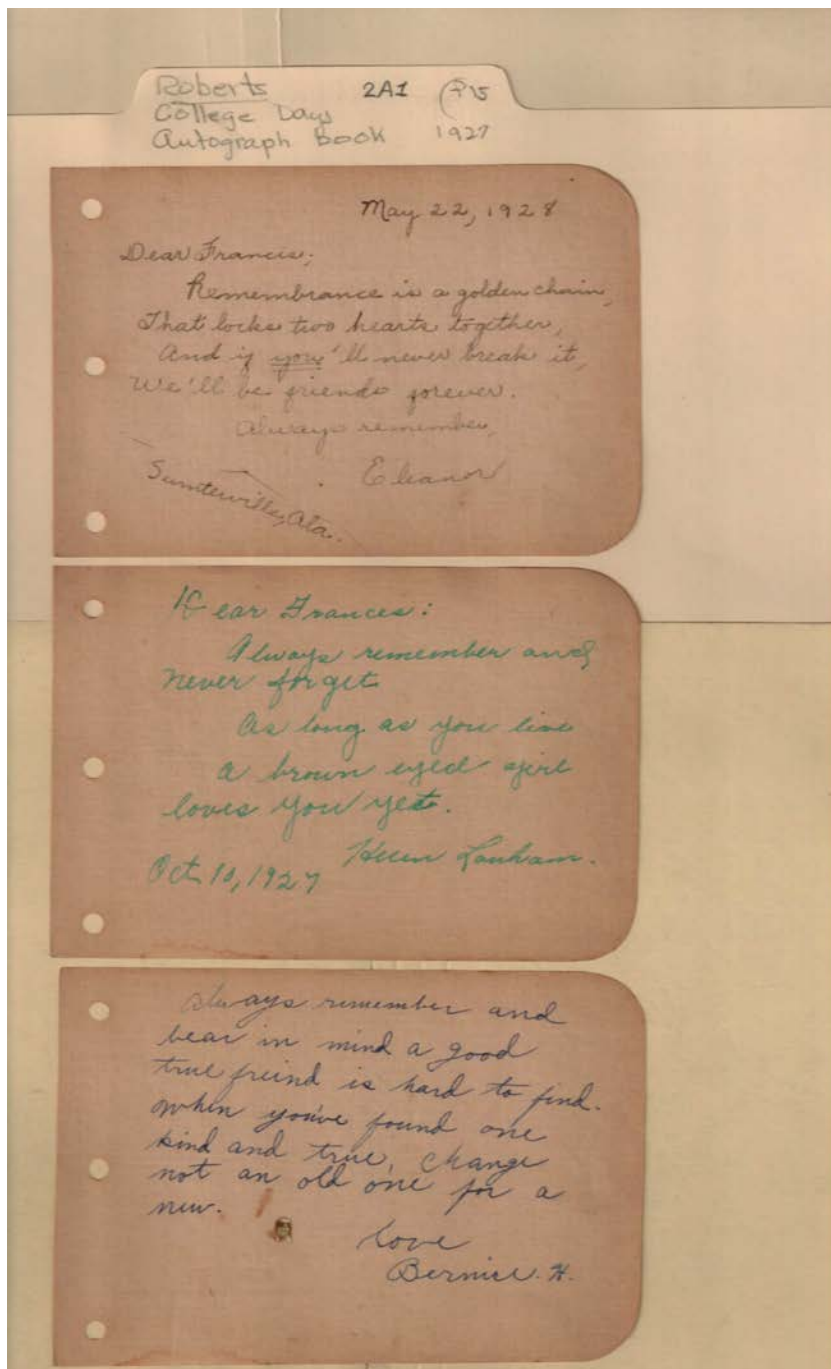 Roberts 2A1 P15
College Days
Autograph Book 1927
May 22, 1928
Dear Francis;
Remembrance is a golden chain,
That locks two hearts together,
And if you'll never break it,
We'll be friends forever.
Always remember,
Eleanor
Sumterville, Ala.
Dear Frances:
Always remember and
never forget
As long as you live
a brown eyed girl
loves you yet.
Helen Lanham.
Oct 10, 1927
Always remember and
bear in mind a good
true freind is hard to find.
when you've found one
kind and true, change
not an old one for a
new.
Love
Bernice. H.